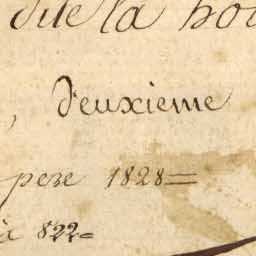 dite la
, Deuxieme
pere 1828=
à 822=